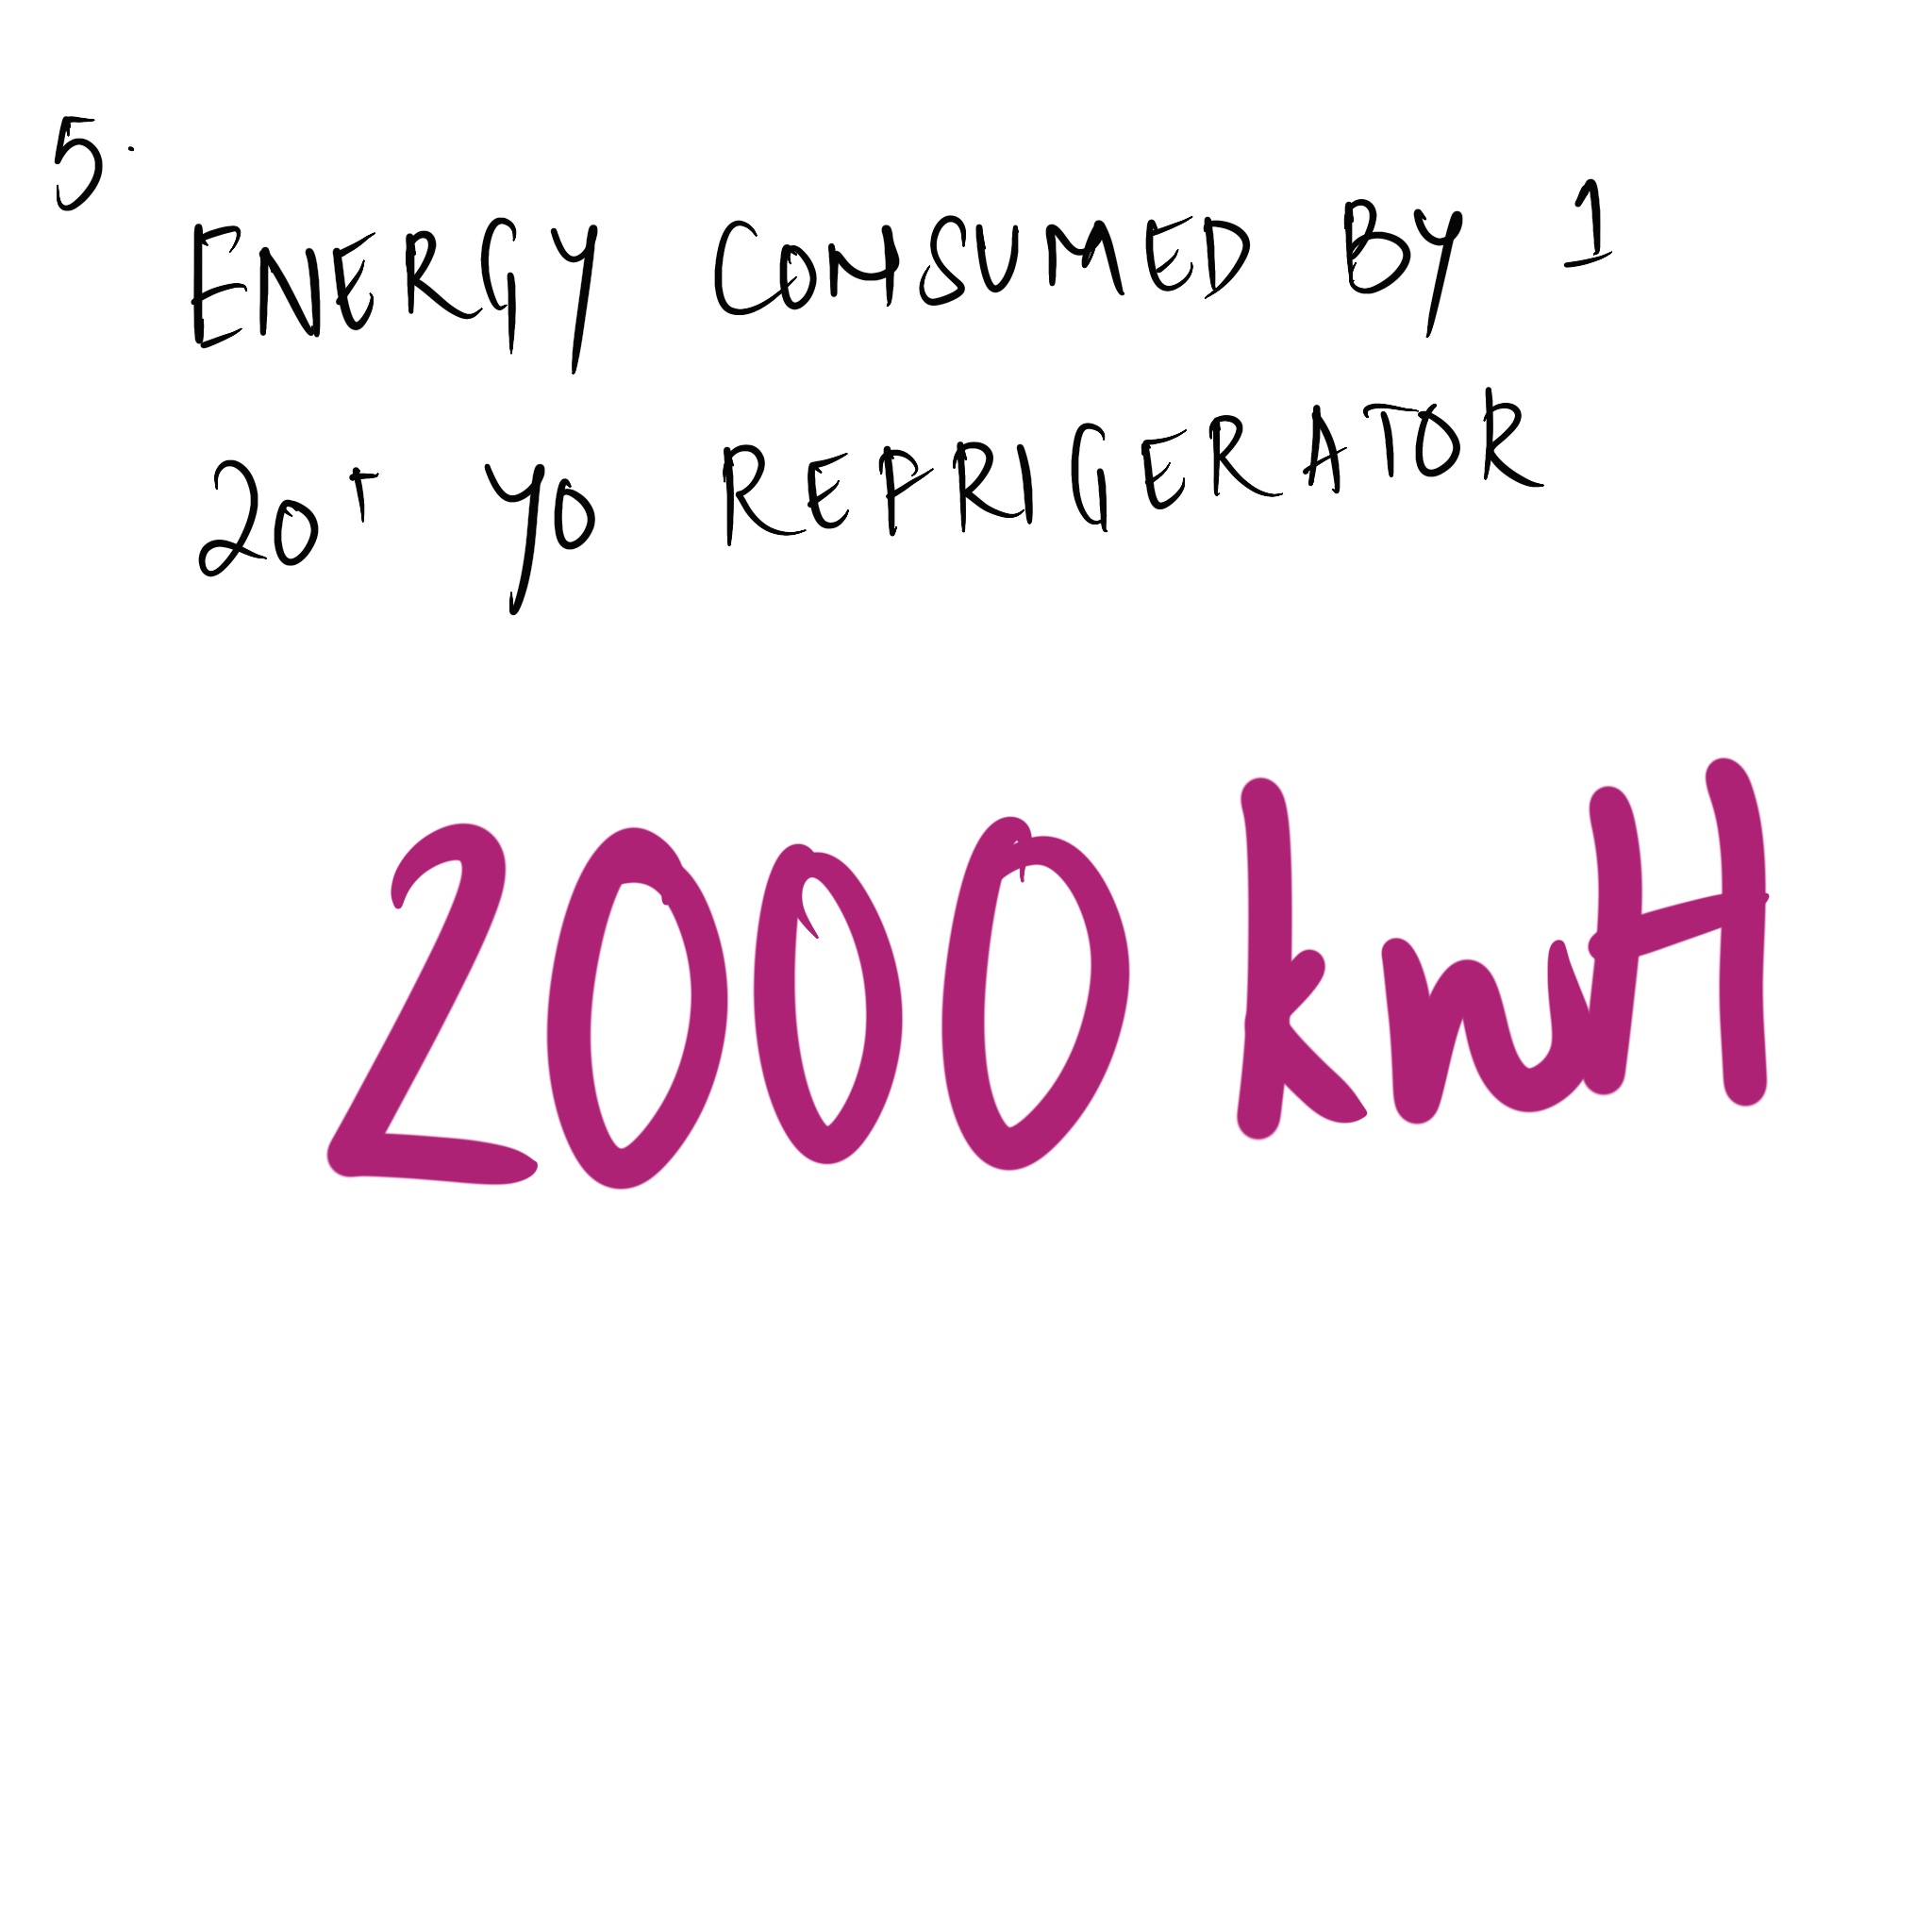 5.
ENERGY CONSUMED BY 1
20+ YO REFRIGERATOR
2000 kWH